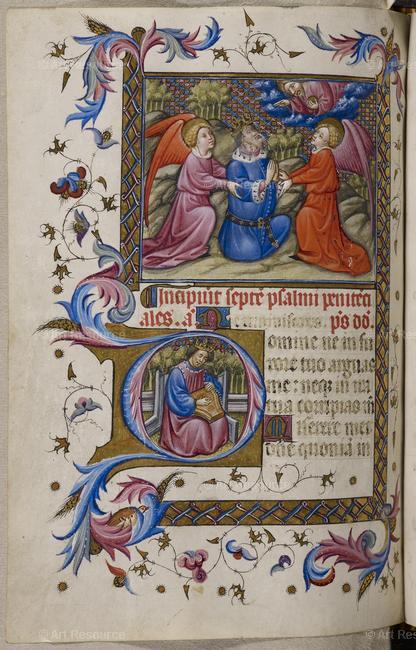 Incipiunt septē psalmi peniteci
ales. a͞ Ne reminiscaris. p̄s dd̄.
Domine ne in fu
rore tuo arguas
me: neqꝫ in ira
tua corripias m̄
Miserere mei
dn̄e quoniā in
© Art Resource
© Art Resource